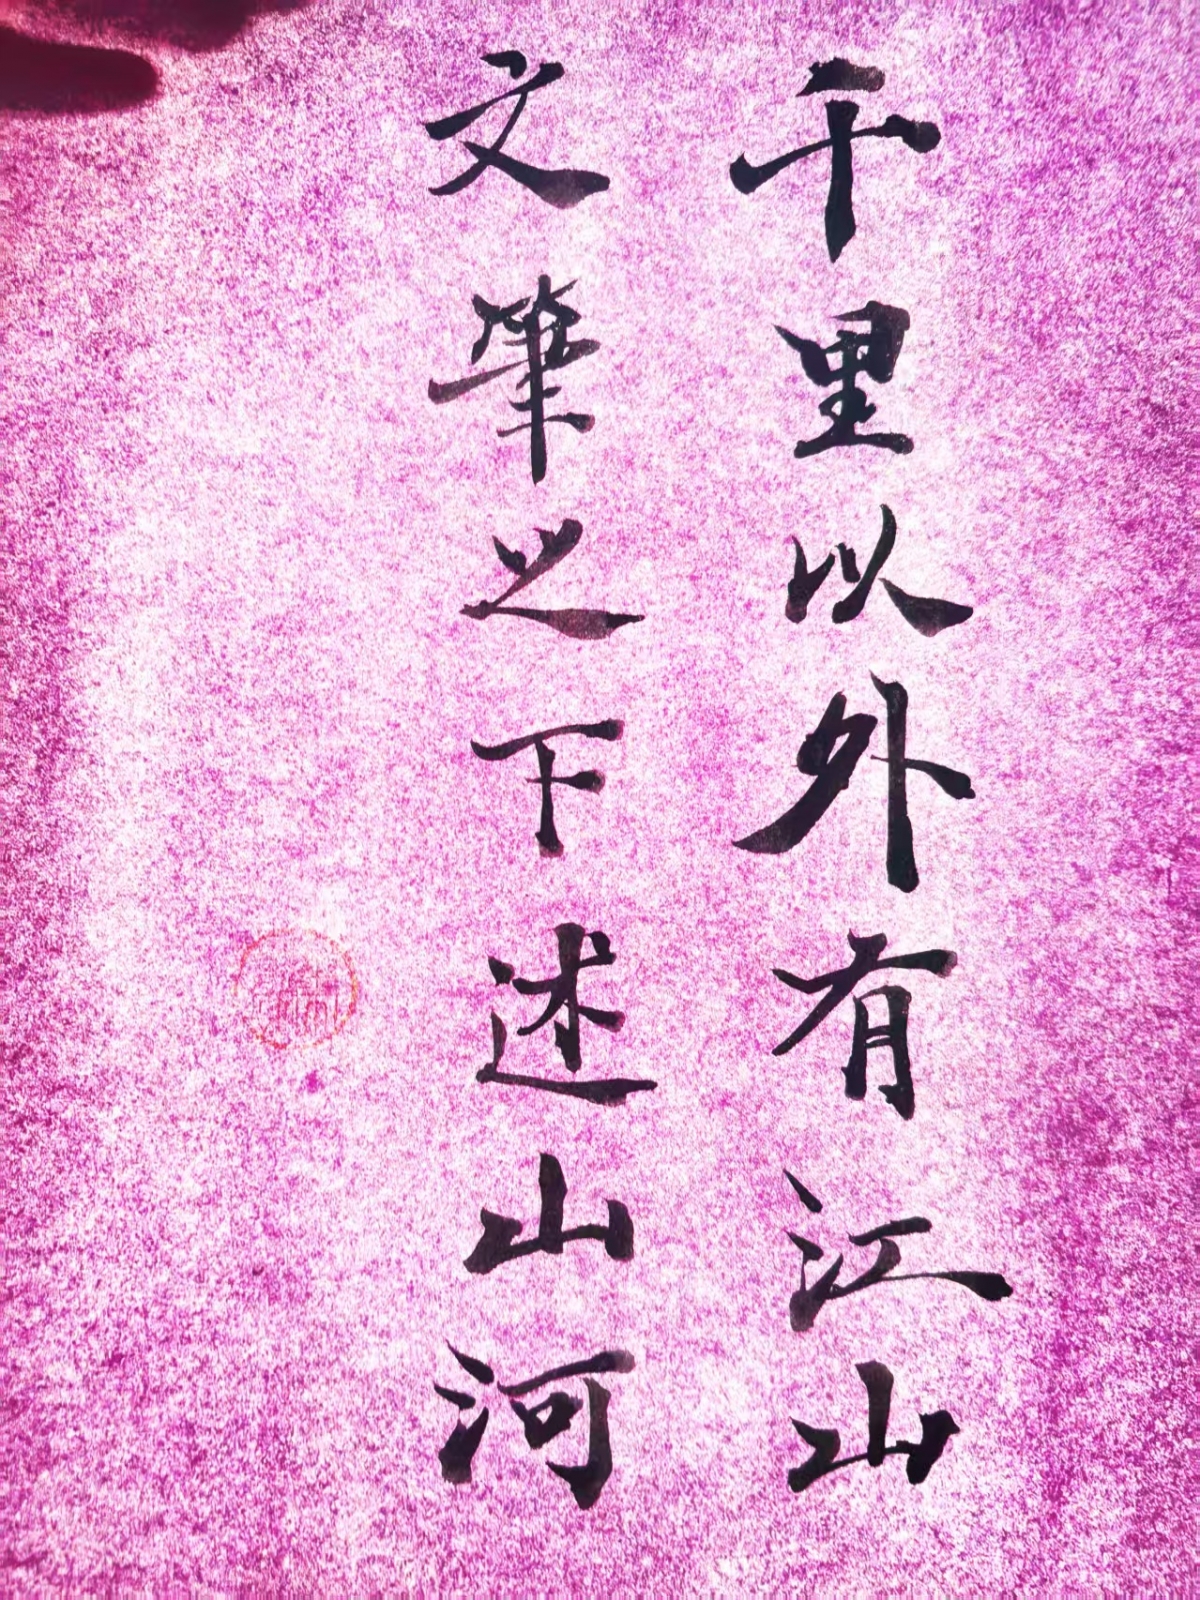 千里以外有江山
文筆之下述山河